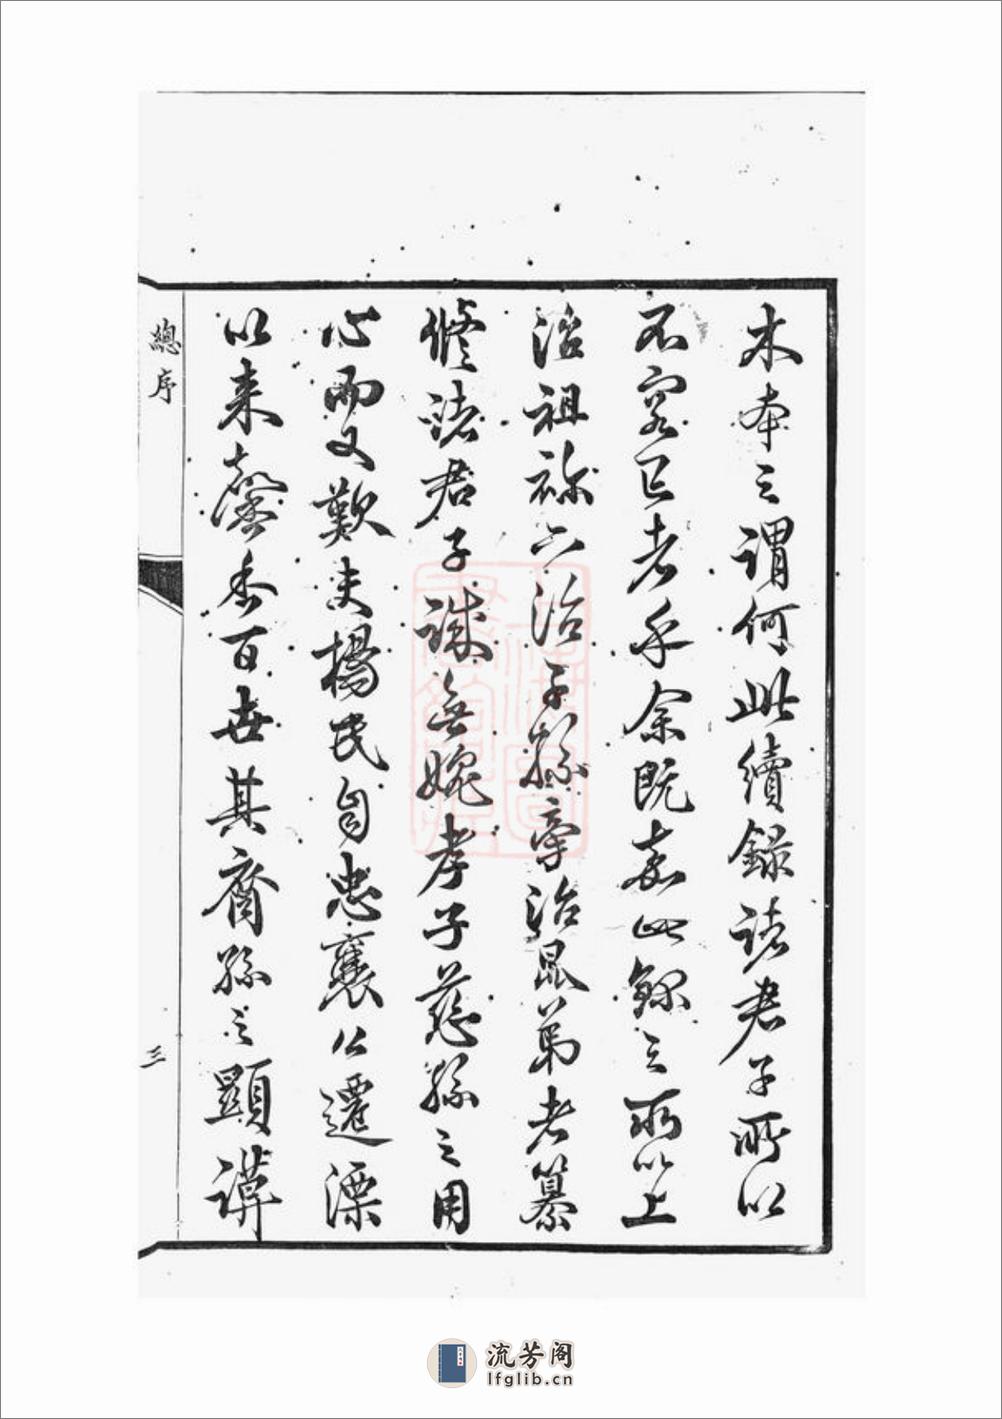 木本之謂何此續錄諸君子所以
不容已者乎余既嘉此錄之所以上
治祖祢下治子孫旁治昆弟者纂
修諸君子誠無媿孝子慈孫之用
心而又歎夫楊氏自忠襄公遷溧
以来馨香百世其裔孫之顯
總序
三
流芳阁
lfglib.cn